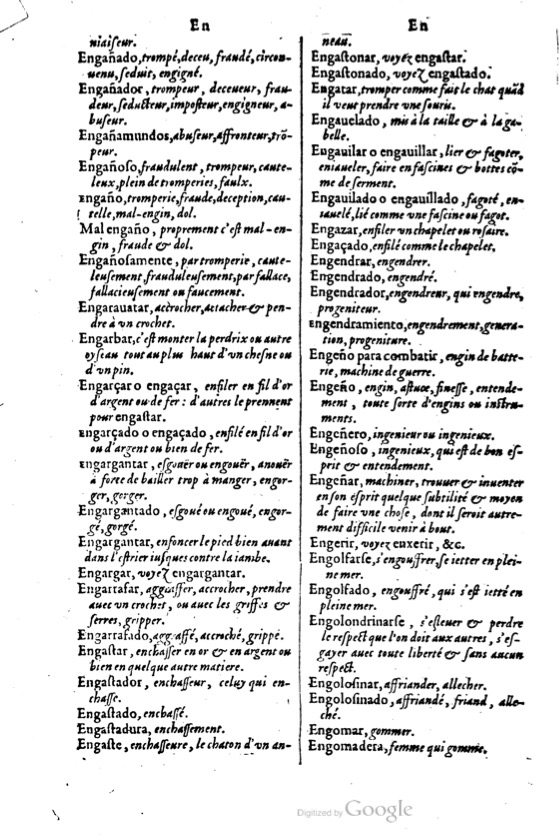 En
niaiseur.
Engañado, trompé, deceu, fraudé, circon-
uenu, seduit, engigné.
Engañador, trompeur, deceueur, frau-
deur, seducteur, imposteur, engigneur, a-
buseur.
Engañamundos, abuseur, affronteur, trõ-
peur.
Engañoso, fraudulent, trompeur, caute-
leux, plein de tromperies, faulx.
Engaño, tromperie, fraude, deception, cau-
telle, mal-engin, dol.
Mal engaño, proprement c'est mal-en-
gin, fraude & dol.
Engañosamente, par tromperie, caute-
leusement, frauduleusement, par fallace,
fallacieusement ou faucement.
Engarauatar, accrocher, attacher & pen-
dre à vn crochet.
Engarbar, c'est monter la perdrix ou autre
oyseau tout au plus haut d'vn chesne ou
d'vn pin.
Engarçar o engaçar, enfiler en fil d'or
d'argent ou de fer: d'autres le prennent
pour engastar.
Engarçado o engaçado, enfilé en fil d'or
ou d'argent ou bien de fer.
Engargantar, esgouër ou engouër, anouër
à force de bailler trop à manger, engor-
ger, gorger.
Engargantado, esgoué ou engoué, engor-
gé, gorgé.
Engargantar, enfoncer le pied bien auant
dans l'estrier iusques contre la iambe.
Engargar, voyez engargantar.
Engarrafar, aggraffer, accrocher, prendre
auec vn crochet, ou auec les griffes &
serres, gripper.
Engarrafado, aggraffé, accroché, grippé.
Engastar, enchasser en or & en argent ou
bien en quelque autre matiere.
Engastador, enchasseur, celuy qui en-
chasse.
Engastado, enchassé.
Engastadura, enchassement.
Engaste, enchasseure, le chaton d'vn an-
En
neau.
Engastonar, voyez engastar.
Engastonado, voyez engastado.
Engatar, tromper comme fait le chat quãd
il veut prendre vne souris.
Engauelado, mis à la taille & à la ga-
belle.
Engauilar o engauillar, lier & fagoter,
eniaueler, faire en fascines & bottes cõ-
me de serment.
Engauilado o engauillado, fagoté, en-
iauelé, lié comme vne fascine ou fagot.
Engazar, enfiler vn chapelet ou rosaire.
Engaçado, enfilé comme le chapelet.
Engendrar, engendrer.
Engendrado, engendré.
Engendrador, engendreur, qui engendre,
progeniteur.
Engendramiento, engendrement, genera-
tion, progeniture.
Engeño para combatir, engin de batte-
rie, machine de guerre.
Engeño, engin, astuce, finesse, entende-
ment, toute sorte d'engins ou instru-
ments.
Engeñero, ingenieur ou ingenieux.
Engeñoso, ingenieux, qui est de bon es-
prit & entendement.
Engeñar, machiner, trouuer & inuenter
en son esprit quelque subtilité & moyen
de faire vne chose, dont il seroit autre-
ment difficile venir à bout.
Engerir, voyez enxerir, &c.
Engolfarse, s'engouffrer, se ietter en plei-
ne mer.
Engolfado, engouffré, qui s'est ietté en
pleine mer.
Engolondrinarse, s'esleuer & perdre
le respect que l'on doit aux autres, s'es-
gayer auec toute liberté & sans aucun
respect.
Engolosinar, affriander, allecher.
Engolosinado, affriandé, friand, alle-
ché.
Engomar, gommer.
Engomadera, femme qui gomme.
Digitized by Google